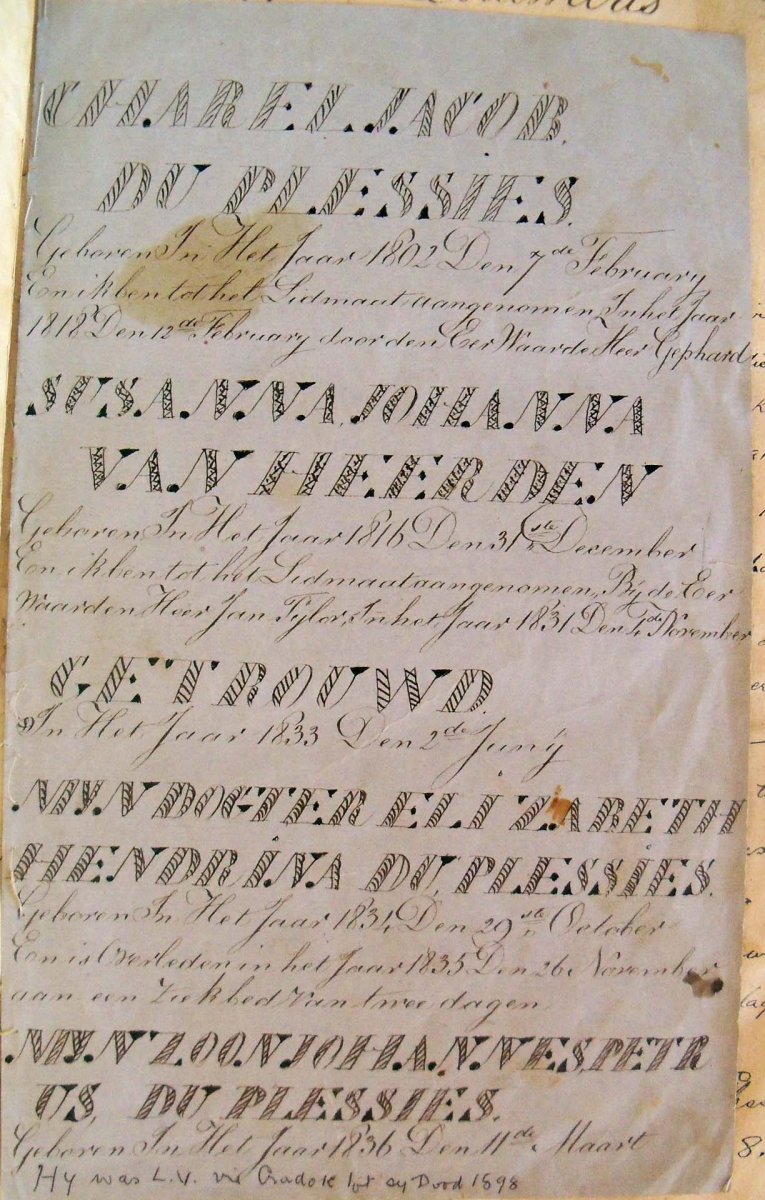 CHAREL JACOB.
DU PLESSIES.
Geboren In Het Jaar 1802 Den 7de February
En ik ben tot het Lidmaat aangenomen, In het Jaar
1818 Den 12de February door den Eer Waarde Heer Gephard
SUSANNA, JOHANNA
VAN HEERDEN
Geboren In Het Jaar 1816 Den 31ste December
En ik ben tot het Lidmaat aangenomen, By de Eer
Waarden Heer Jan Tylor, In het Jaar 1831 Den 4de November
GETROUWD.
In Het Jaar 1833 Den 2de Juny
MYN DOGTER ELIZABETH
HENDRINA DU, PLESSIES.
Geboren In Het Jaar 1834, Den 29ste October
En is Overleden in het Jaar 1835 Den 26 November
aan een Ziekbed van twee dagen
MYN ZOON JOHANNES, PETR
US, DU PLESSIES.
Geboren In Het Jaar 1836 Den 11de Maart
Hy was L.V. vir Cradok tot sy Dood 1898